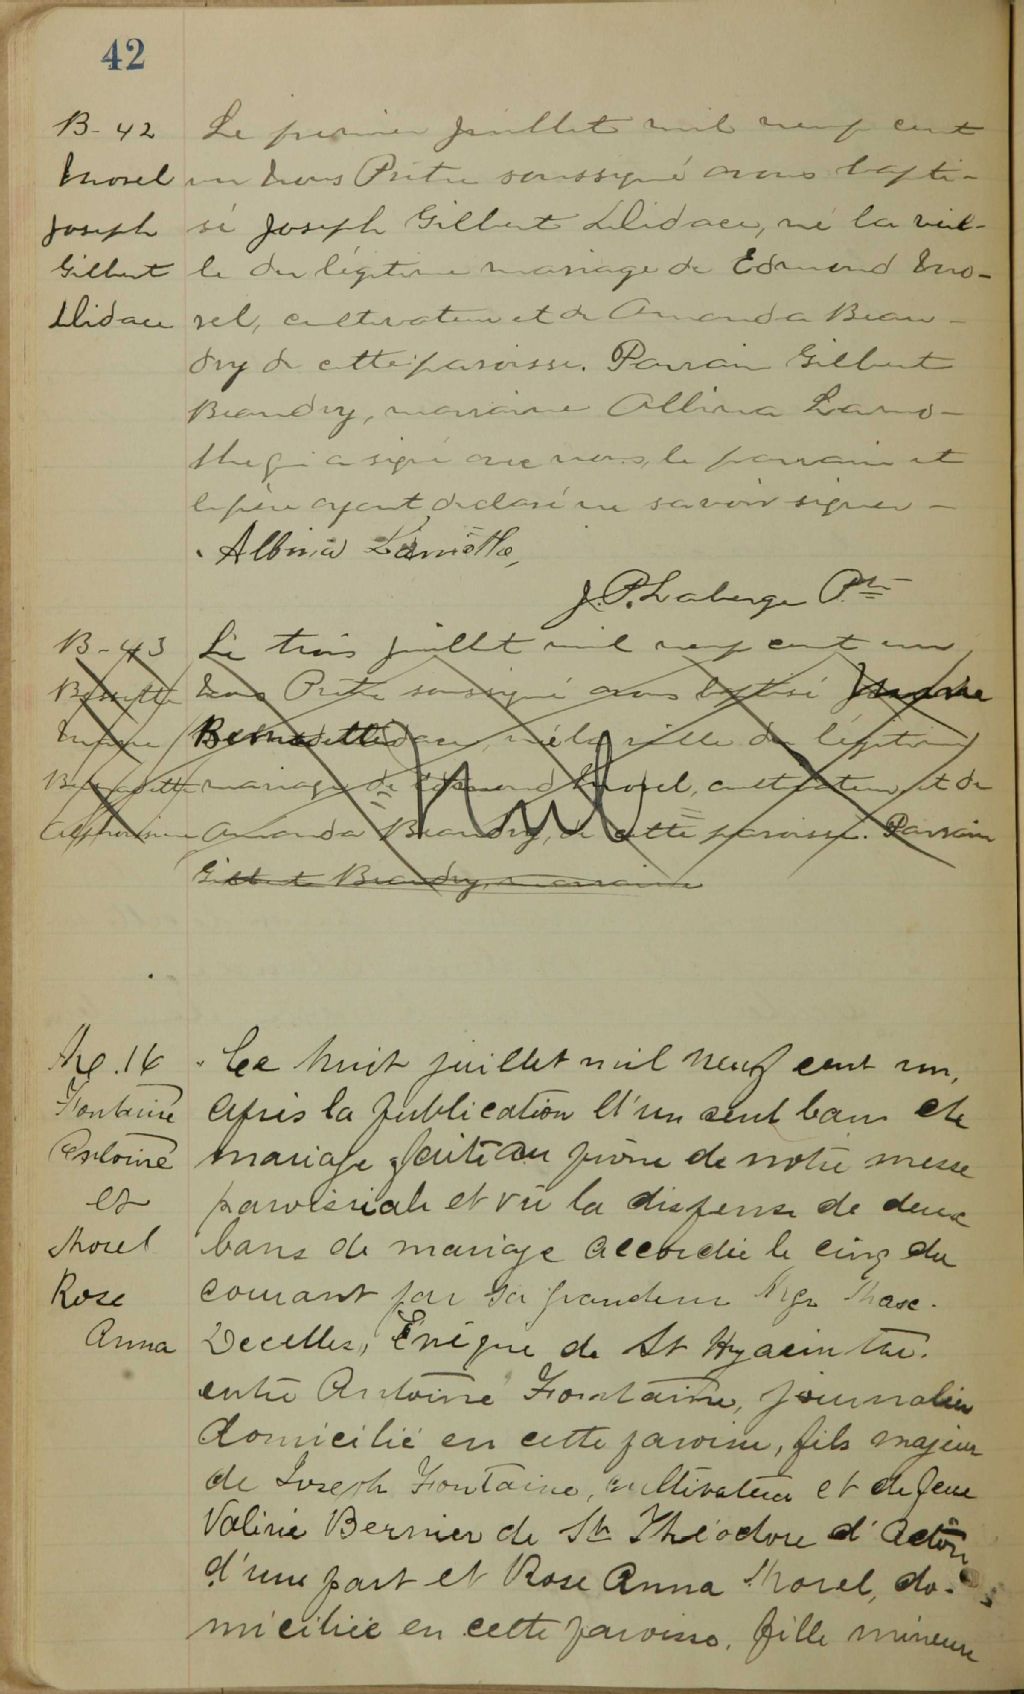 42
B-42
Morel
Joseph
Gilbert
Didace
Le premier juillet mil neuf cent
un Nous Prêtre soussigné avons bapti-
sé Joseph Gilbert Didace, né la veil-
le du légitime mariage de Edmond Mo-
rel, cultivateur et de Amanda Beau-
dry de cette paroisse. Parrain Gilbert
Beaudry, marraine Albina Lamo-
the qui a signé avec nous, le parrain et
le père ayant déclaré ne savoir signer -
Albina Lamothe,
J. P. Laberge Ptre
B-43
Marie
Bernadette
Le trois juillet mil neuf cent un
Nous Prêtre soussigné avons baptisé Marie
Bernadette né la veille du légitime
mariage de Edmond Morel, cultivateur et de
Amanda Beaudry, de cette paroisse. Parrain
Gilbert Beaudry, marraine
Nul
M. 14
Fontaine
Antoine
et
Morel
Rose
Anna
Le huit juillet mil neuf cent un,
après la publication d'un seul ban de
mariage faite au prône de notre messe
paroissiale et vu la dispense de deux
bans de mariage accordée le cinq du
courant par sa grandeur Mgr Maxe.
Decelles, Evêque de St Hyacinthe.
entre Antoine Fontaine, journalier
domicilié en cette paroisse, fils majeur
de Joseph Fontaine, cultivateur et de feue
Valérie Bernier de St Théodore d'Acton
d'une part et Rose Anna Morel, do-
miciliée en cette paroisse, fille mineure